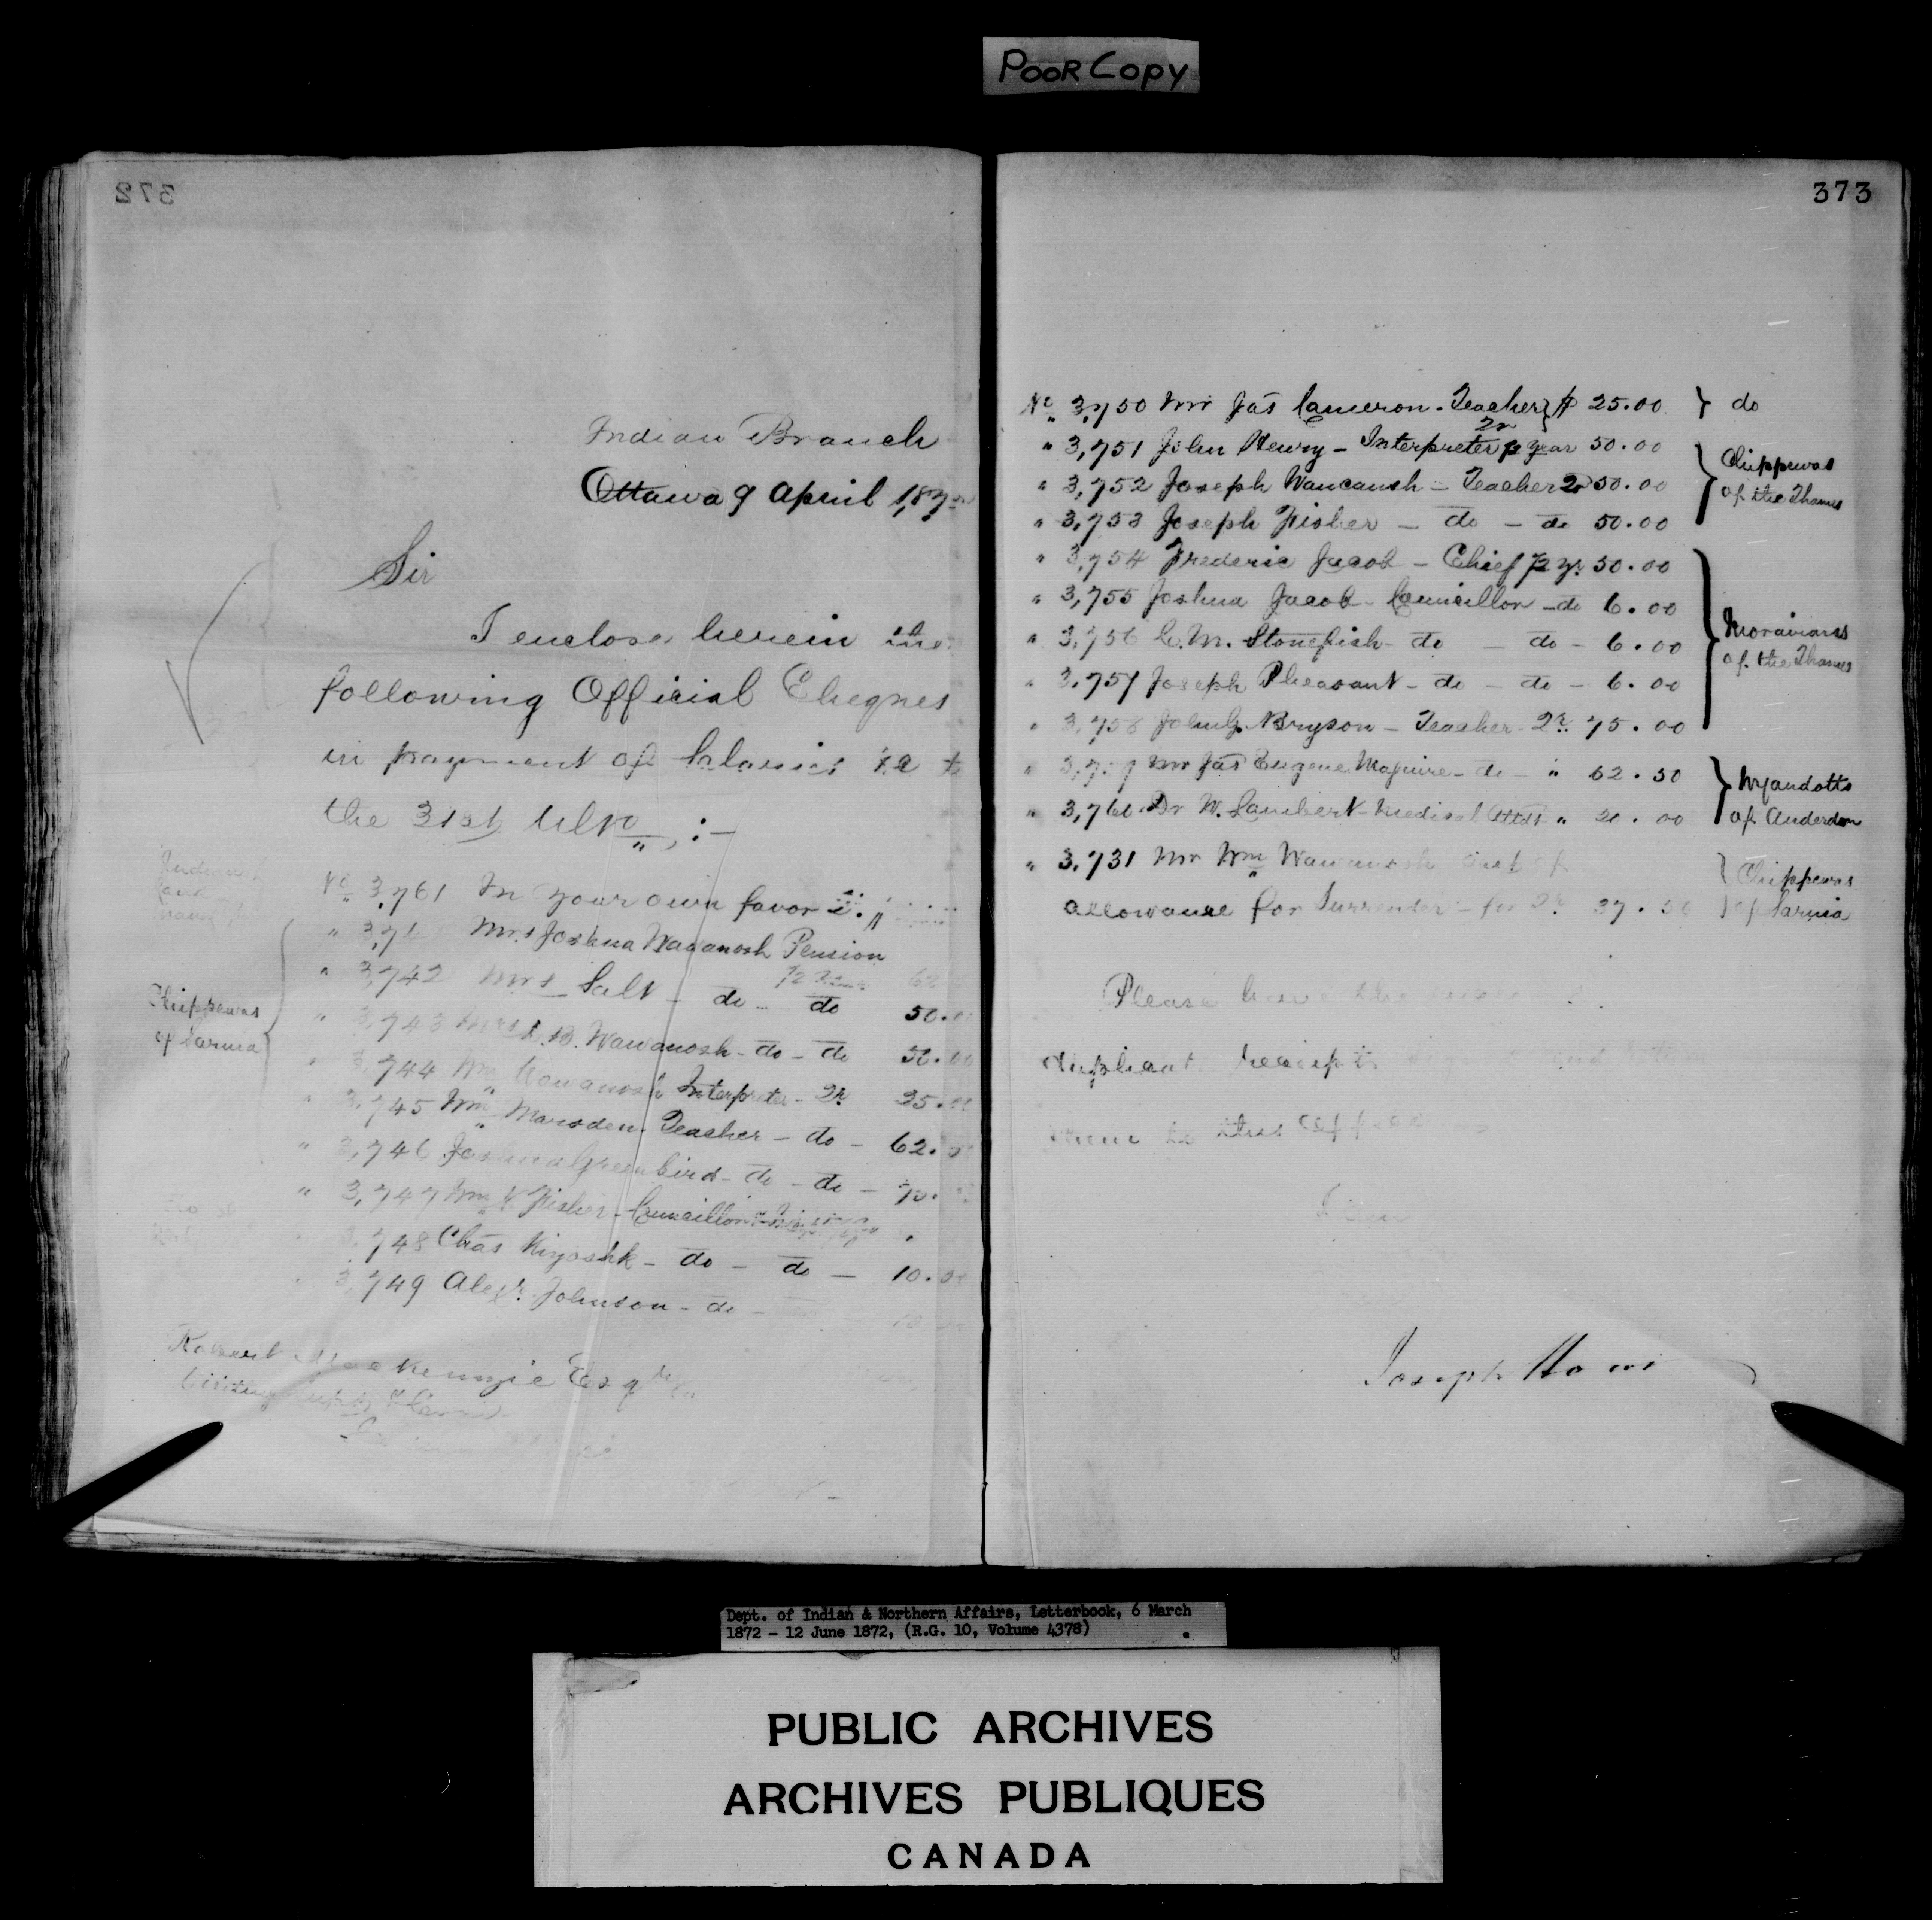 POOR Copy
372
Indian Branch
Ottawa 9 April 187
Sir
I enclose herein the
following Official Cheques
in payment of Salaries &c to
the 31st Ulto, :-
No 3,761 In your own favor
" 3,74 Mrs Joshua Wawanosh Pension
" 3,742 Mrs Salt - do - do 50.
" 3,743 Mrs B. Wawanosh - do - do 50.00
3,744 Wm Wawanosh Interpreter - Qr 25.
" 3,745 Wm Marsden Teacher - do - 62.
" 3,746 Joshua Greenbird - do - do -
" 3,747 Wm N. Fisher - Councillor
3,748 Chas Kiyoshk - do - do - 10.
3,749 Alexr Johnson - do -
Chippewas
of Sarnia
Robert Mackenzie Esqr
Visiting Supt &
373
No 3,750 Mr Jas Cameron - Teacher } $ 25.00 } do
" 3,751 John Henry - Interpreter p year 50.00
" 3,752 Joseph Waucaush - Teacher Qr 50.00
" 3,753 Joseph Fisher - do - do 50.00
Chippewas
of the Thames
" 3,754 Frederic Jacob - Chief p yr 50.00
" 3,755 Joshua Jacob - Councillor - do 6.00
" 3,756 C. M. Stonefish - do - do - 6.00
" 3,757 Joseph Pheasant - do - do - 6.00
" 3,758 John G. Bryson - Teacher - Qr 75.00
Moravians
of the Thames
" 3,759 Mr Jas Eugene Maguire - do - " 62.50
" 3,760 Dr W. Lambert - Medical Attdt " 20.00
Wyandotts
of Anderdon
" 3,731 Mr Wm Wawanosh
allowance for Surrender - for Qr 37.50
Chippewas
of Sarnia
Please have the
duplicate receipts
them to this Office
Joseph Howe
Dept. of Indian & Northern Affairs, Letterbook, 6 March
1872 - 12 June 1872, (R.G. 10, Volume 4378)
PUBLIC ARCHIVES
ARCHIVES PUBLIQUES
CANADA